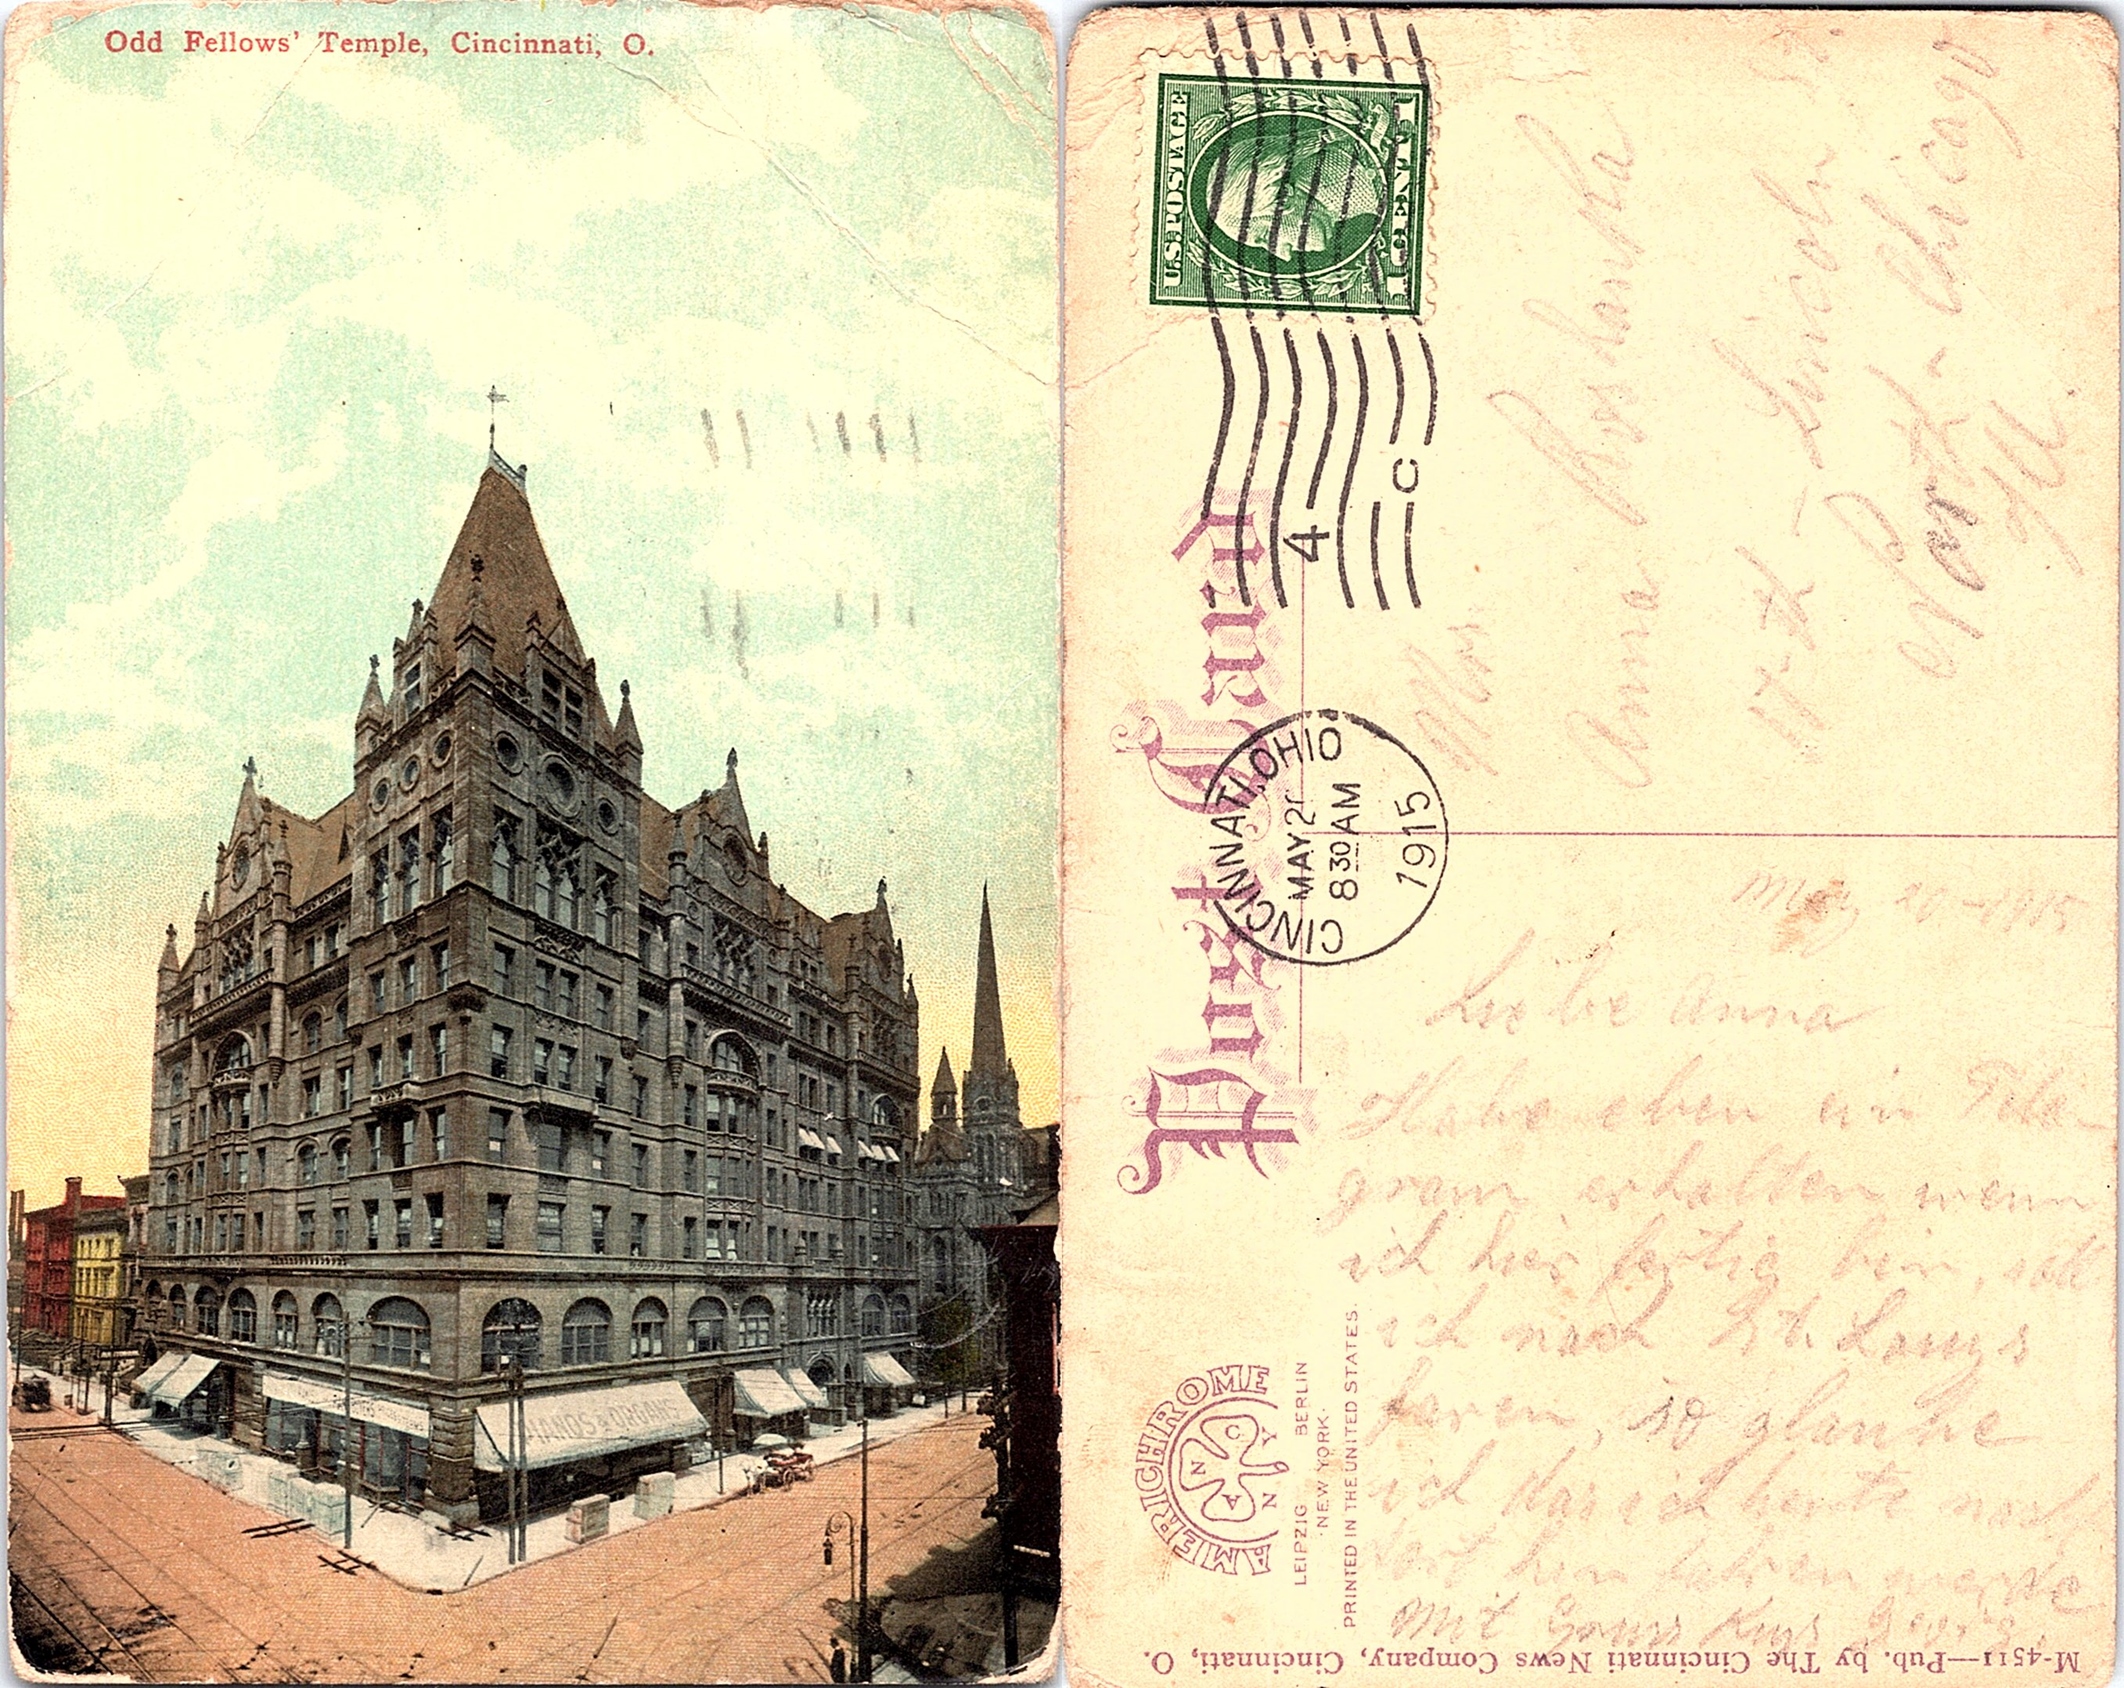 Odd Fellows' Temple, Cincinnati, O.
PIANOS & ORGANS
U.S. POSTAGE
1 CENT 1
4
C
CINCINNATI, OHIO
MAY 2
8 30 AM
1915
Post Card
Anna
Lincoln St
North - Chicago
Ill
May 20 - 1915
Liebe Anna
Habe eben ein Tele-
gram erhalten wenn
ich hier fertig bin, soll
ich nach St. Louis
faren, so glaube
ich das ich heute noch
dort hin fahren werde
Mit Gruss Kuss
AMERICHROME
A N C O
N Y
LEIPZIG BERLIN
·NEW YORK·
PRINTED IN THE UNITED STATES.
M-4511—Pub. by The Cincinnati News Company, Cincinnati, O.